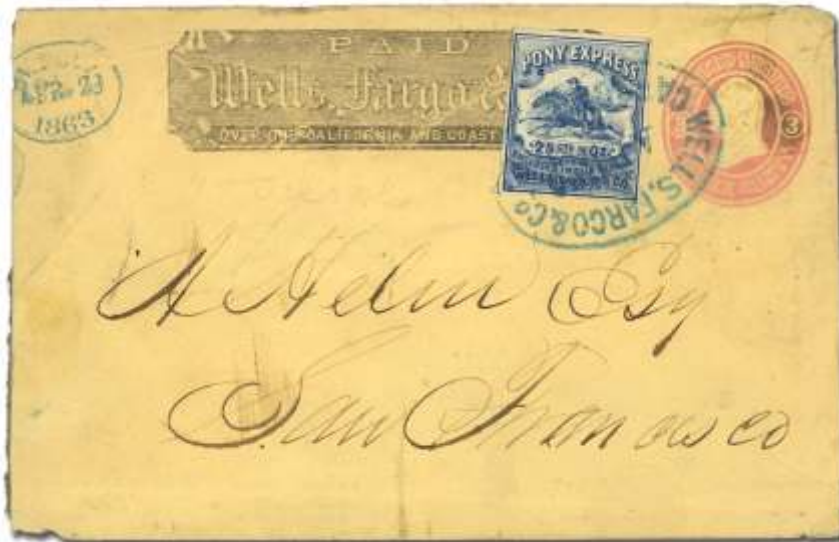 APR 23
1863
PAID
Wells, Fargo &
OVER OUR CALIFORNIA AND COAST
PONY EXPRESS
25
WELLS, FARGO & Co
3
H Helm Esq
San Francisco